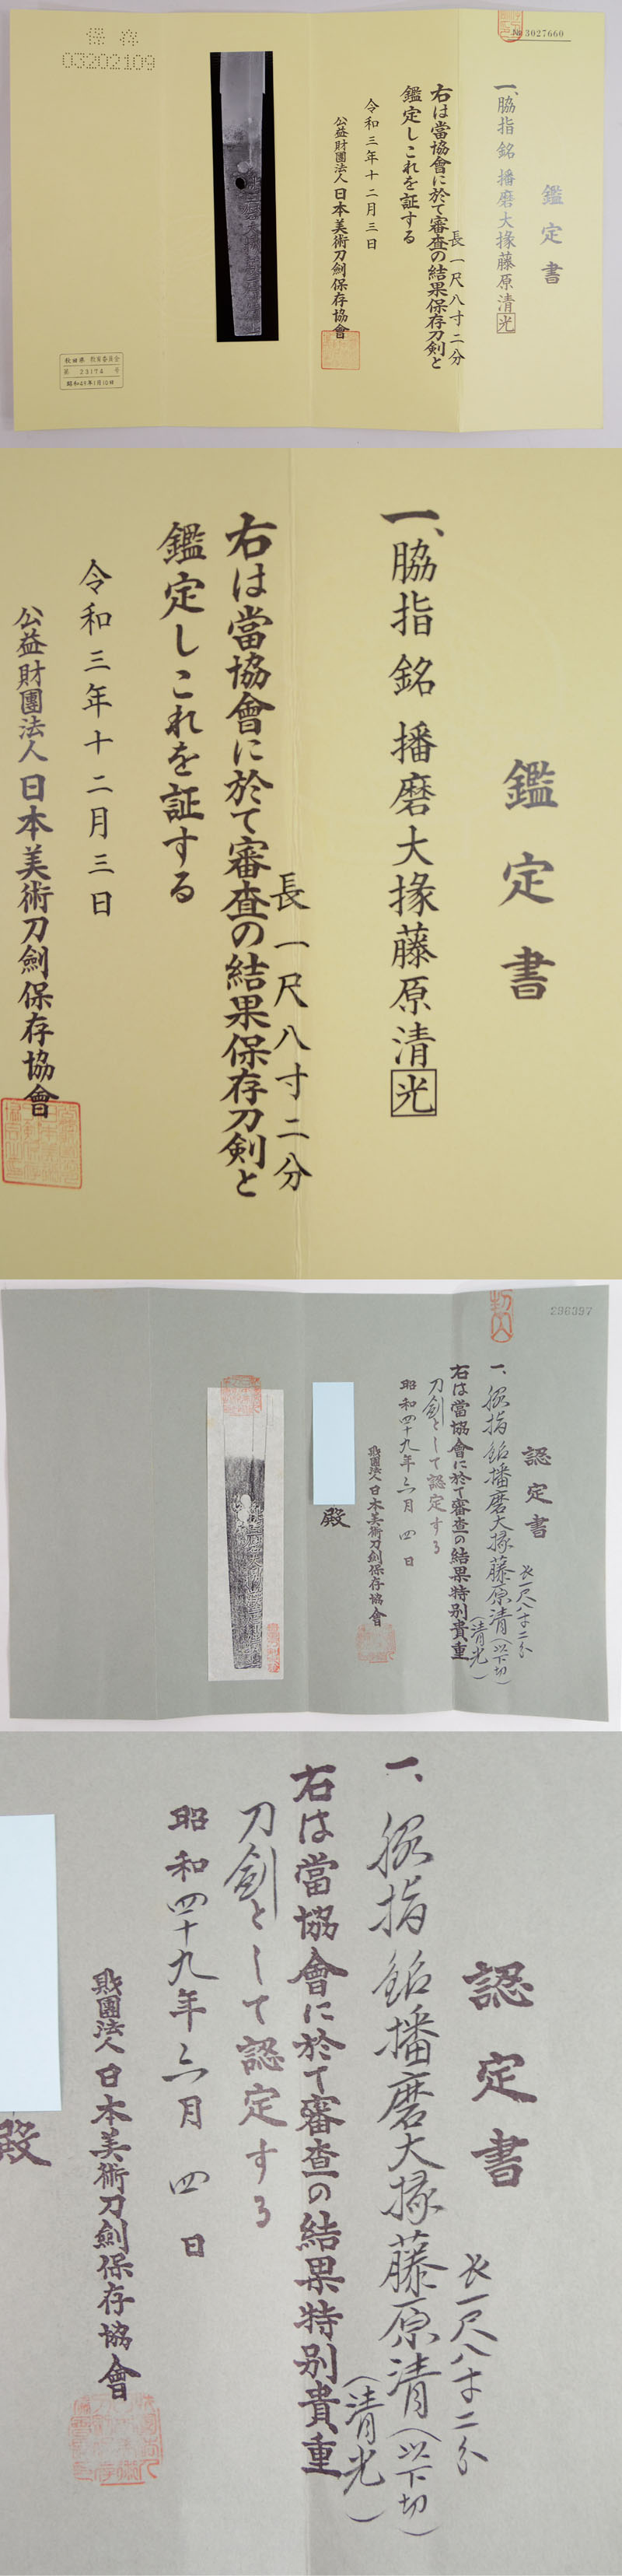 № 3027660
鑑定書
一、脇指 銘 播磨大掾藤原清光
長一尺八寸二分
右は當協會に於て審査の結果保存刀剣と
鑑定しこれを証する
令和三年十二月三日
公益財團法人 日本美術刀劍保存協會
保存
03202109
秋田県教育委員会
第 23174 号
昭和49年1月10日
鑑定書
一、脇指 銘 播磨大掾藤原清光
長一尺八寸二分
右は當協會に於て審査の結果保存刀剣と
鑑定しこれを証する
令和三年十二月三日
公益財團法人 日本美術刀劍保存協會
296397
認定書
長一尺八寸二分
一、脇指 銘播磨大掾藤原清(以下切)
(清光)
右は當協會に於て審査の結果特别貴重
刀劍として認定する
昭和四十九年六月四日
財團法人 日本美術刀劍保存協會
殿
認定書
長一尺八寸二分
一、脇指 銘播磨大掾藤原清(以下切)
(清光)
右は當協會に於て審査の結果特别貴重
刀劍として認定する
昭和四十九年六月四日
財團法人 日本美術刀劍保存協會
殿